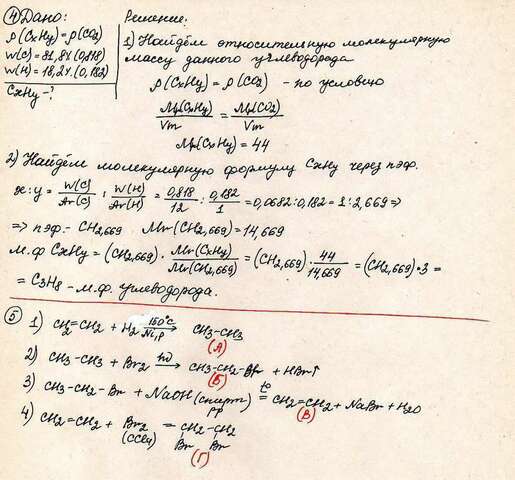 ④ Дано:
ρ(CxHy)=ρ(CO2)
W(C)=81,8%(0,818)
W(H)=18,2%(0,182)
CxHy-?
Решение:
1) Найдём относительную молекулярную
массу данного углеводорода
ρ(CxHy)=ρ(CO2) - по условию
Mr(CxHy)/Vm = Mr(CO2)/Vm
Mr(CxHy)=44
2) Найдём молекулярную формулу CxHy через пэф.
x:y = W(C)/Ar(C) : W(H)/Ar(H) = 0,818/12 : 0,182/1 = 0,0682:0,182=1:2,669 ⇒
⇒ пэф.- CH2,669 Mr(CH2,669)=14,669
м.ф CxHy=(CH2,669)·Mr(CxHy)/Mr(CH2,669)=(CH2,669)·44/14,669=(CH2,669)·3=
= C3H8 - м.ф. углеводорода.
⑤ 1) CH2=CH2 + H2 150°C Ni,p → CH3-CH3
(А)
2) CH3-CH3 + Br2 hν → CH3-CH2-Br + HBr↑
(Б)
3) CH3-CH2-Br + NaOH (спирт. р-р) t° = CH2=CH2 + NaBr + H2O
(В)
4) CH2=CH2 + Br2 (CCl4) = CH2-CH2
Br Br
(Г)